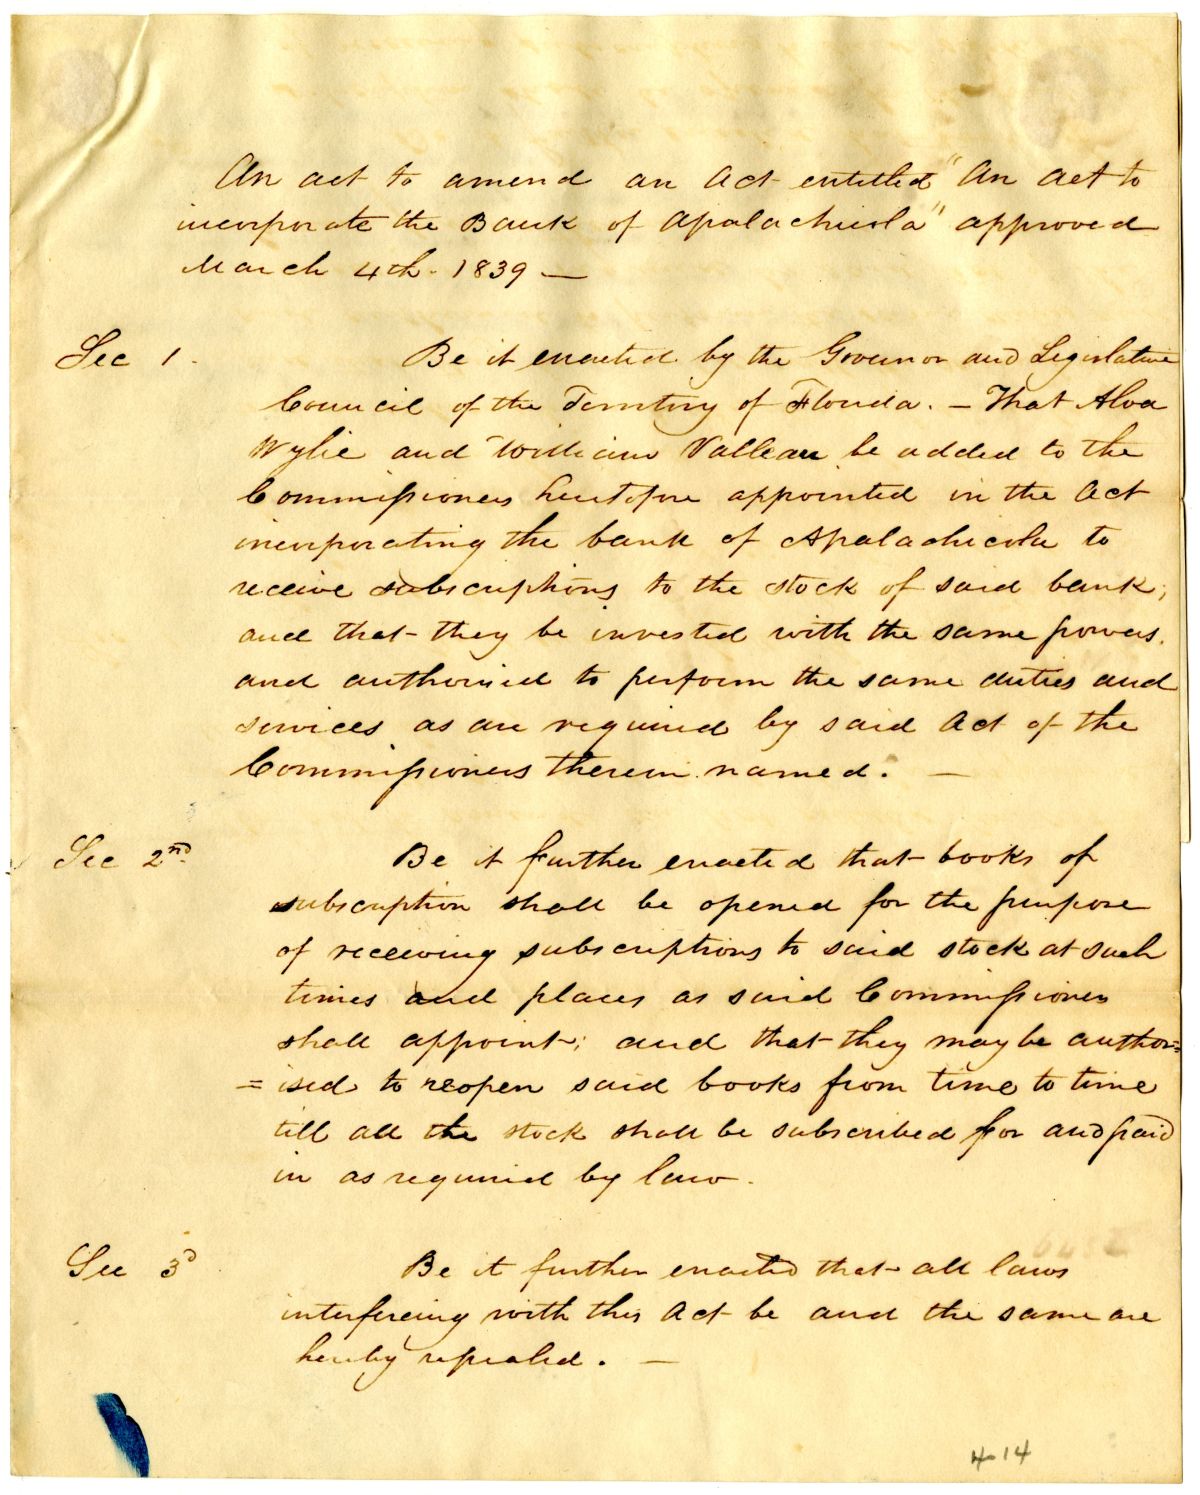 An act to amend an Act entitled "An Act to
incorporate the Bank of Apalachicola" approved
March 4th. 1839 —
Sec 1. Be it enacted by the Governor and Legislative
Council of the Territory of Florida. — That Alva
Wylie and William Valleau be added to the
Commissioners heretofore appointed in the Act
incorporating the bank of Apalachicola to
receive subscriptions to the stock of said bank;
and that they be invested with the same powers.
and authorised to perform the same duties and
services as are required by said Act of the
Commissioners therein named. —
Sec 2nd. Be it further enacted that books of
subscription shall be opened for the purpose
of receiving subscriptions to said stock at such
times and places as said Commissioners
shall appoint; and that they may be author=
=ised to reopen said books from time to time
till all the stock shall be subscribed for and paid
in as required by law.
Sec 3d Be it further enacted that all laws
interfering with this Act be and the same are
hereby repealed. —
4-14